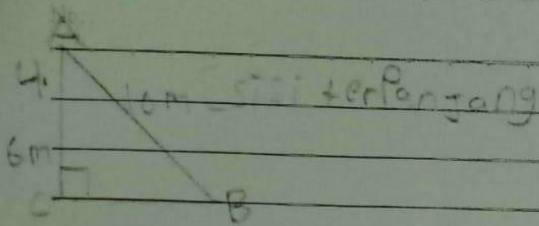 A
4. 10m sisi terPanjang
6m
C B